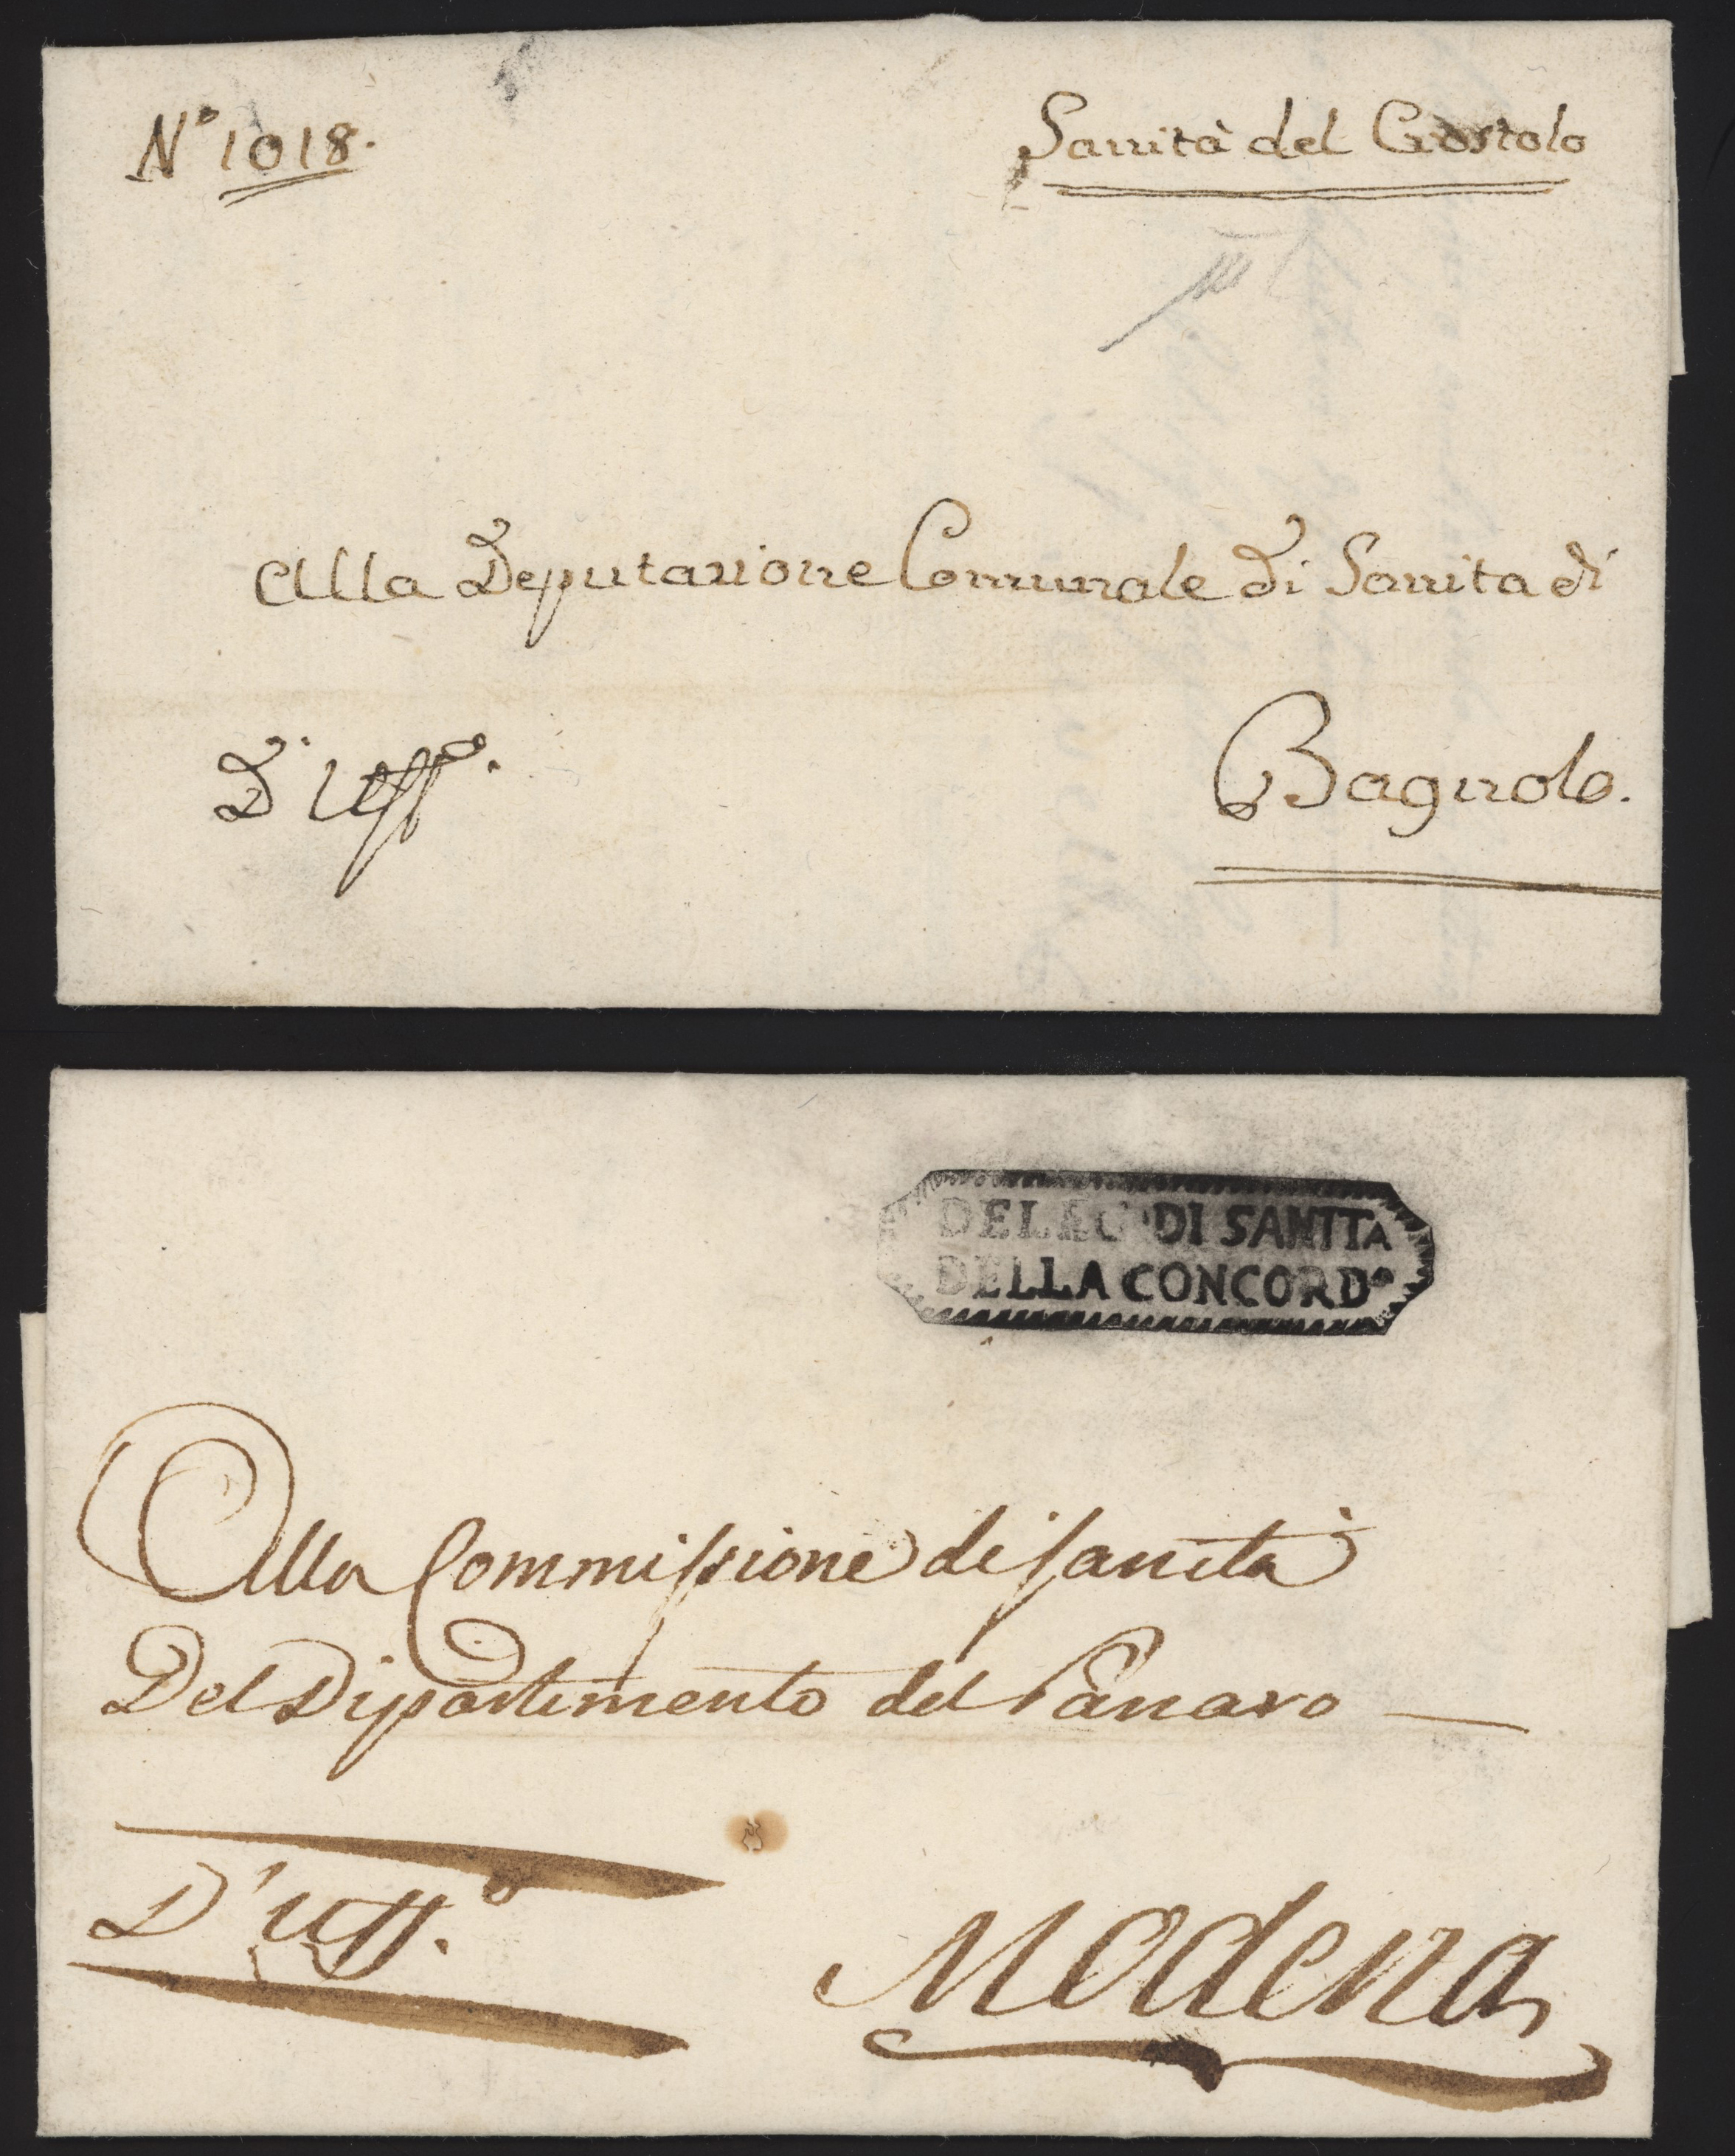 N° 1018.
Sanità del Crostolo
Alla Deputazione Comunale di Sanita di
D' Uff°.
Bagnolo.
DELEG. DI SANITA
DELLA CONCORDª
Alla Commissione di sanità
Del Dipartimento del Panaro
D' uff.°
Modena